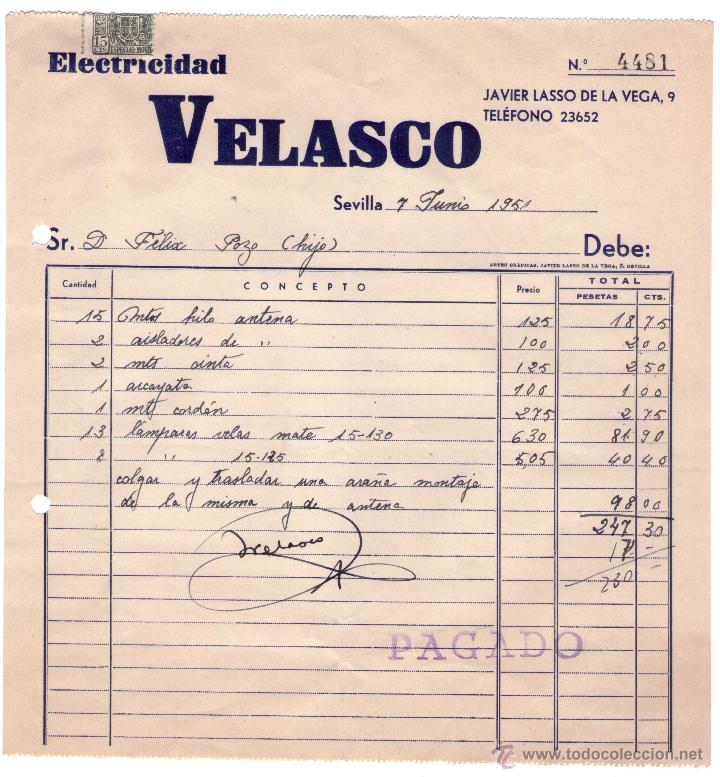 15
CTS
ESPECIAL MOVIL
Electricidad
N.º 4481
VELASCO
JAVIER LASSO DE LA VEGA, 9
TELÉFONO 23652
Sevilla 7 Junio 1951
Sr. D Félix Pozo (hijo) Debe:
ARTES GRÁFICAS. JAVIER LASSO DE LA VEGA, 5. SEVILLA
Cantidad CONCEPTO Precio TOTAL
PESETAS CTS.
15 Mtos hilo antena 125 18 75
2 aisladores de " 100 2 00
2 mts cinta 125 2 50
1 arcayata 100 1 00
1 mt cordón 275 2 75
13 lamparas velas mate 15-130 630 81 90
8 " 15-125 5,05 40 40
colgar y trasladar una araña montaje
de la misma y de antena 98 00
247 30
17 -
230
Velasco
PAGADO
www.todocoleccion.net